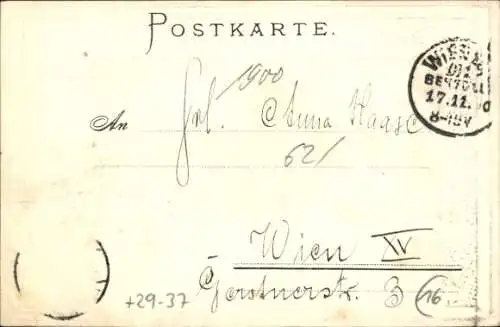 POSTKARTE.
WIEN
BESTELLT
17.11.00
8-10V
1900
An Frl. Anna Haase
621
Wien XV
Gerstnerstr. 3
16.
+29-37